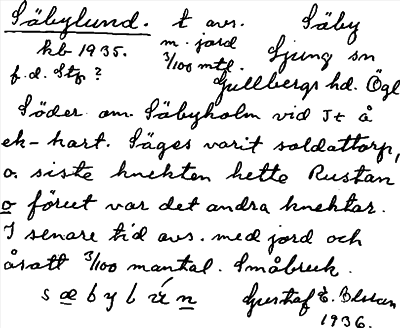 Säbylund. t avs. Säby
kb 1935. m. jord Ljung sn
f.d. Stp? 3/100 mtl. Gullbergs hd. Ögl
Söder om Säbyholm vid St å
ek-hart. Säges varit soldattorp,
o. siste knekten hette Rustan
o förut var det andra knektar.
I senare tid avs. med jord och
åsatt 3/100 mantal. Småbruk.
Gustaf E.
1936.